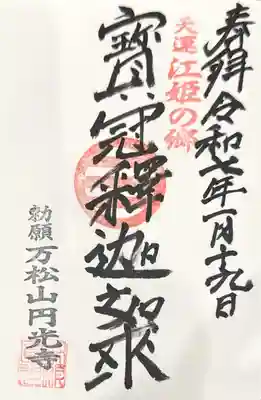 奉拝 令和七年一月十九日
天運 江姫の郷
寳冠釋迦如来
勅願 万松山円光寺